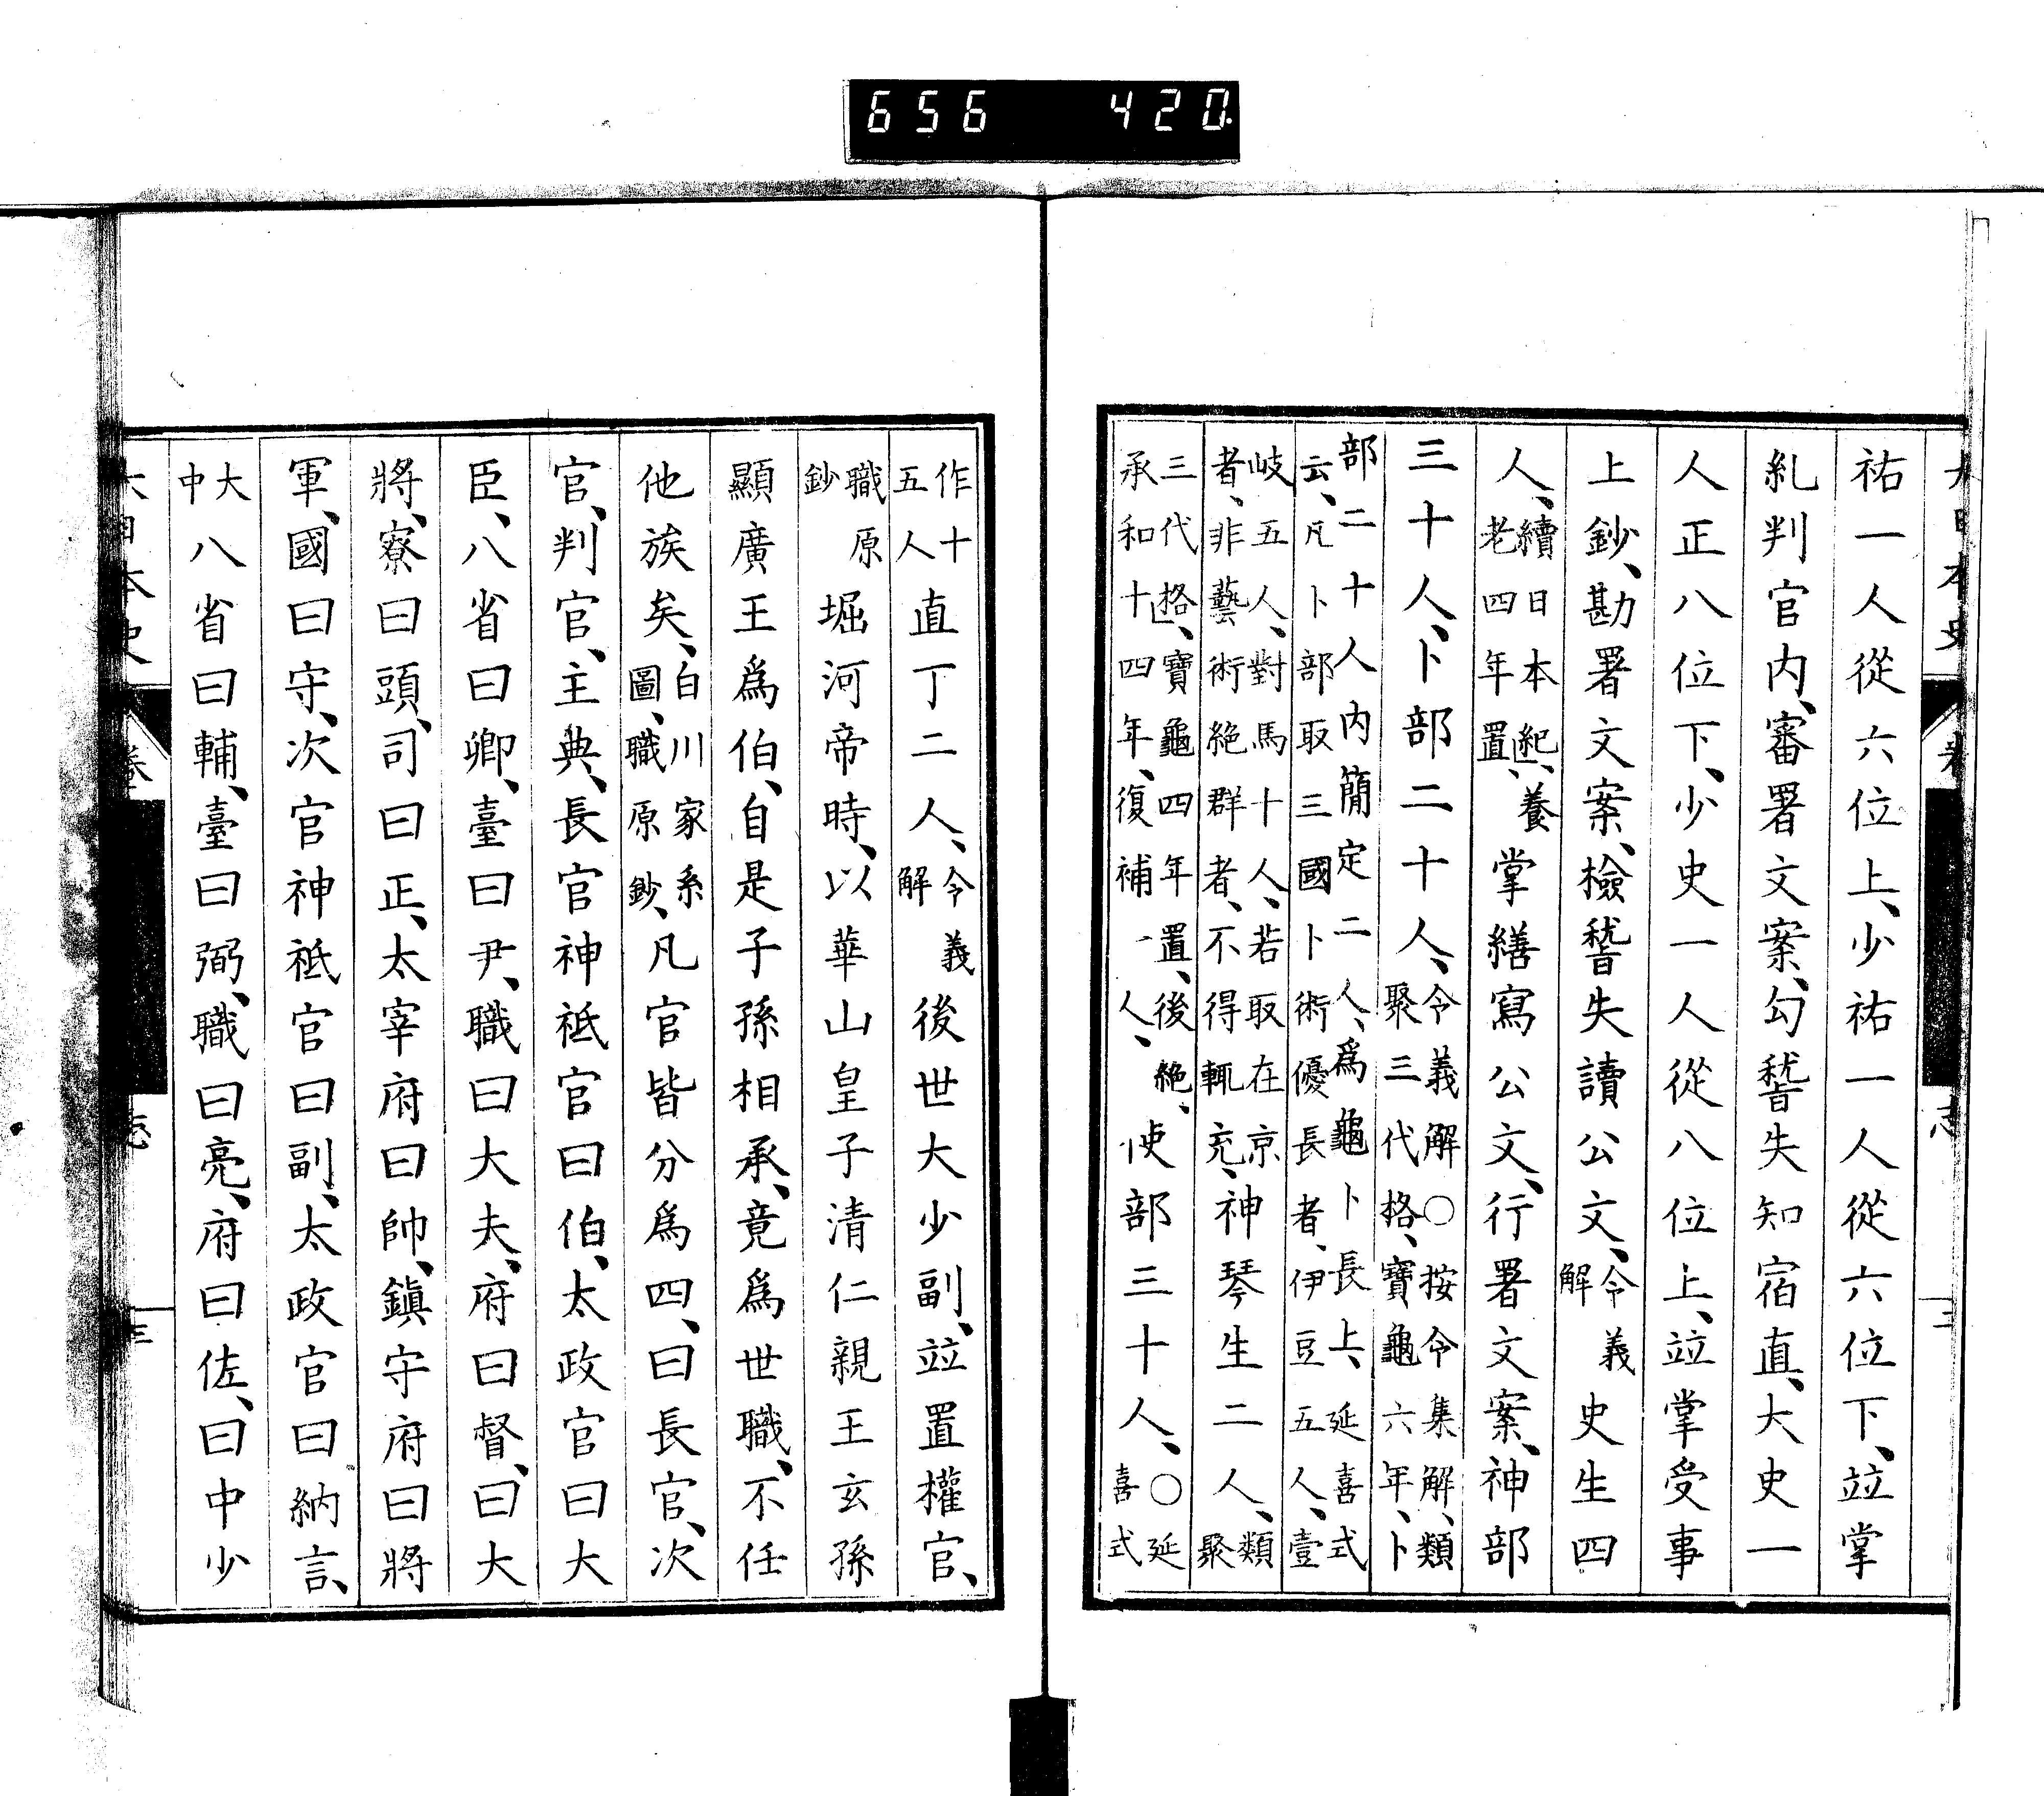 656 420
祐一人從六位上、少祐一人從六位下、竝掌
糺判官内、審署文案、勾稽失知宿直、大史一
人正八位下、少史一人從八位上、竝掌受事
上鈔、勘署文案、檢稽失讀公文、令義
解
史生四
人、
續日本紀、養
老四年置、
掌繕寫公文、行署文案、神部
三十人、卜部二十人、
令義解○按令集解、類
聚三代格、寶龜六年、卜
部二十人内簡定二人、爲龜卜長上、延喜式
云、凡卜部取三國卜術優長者、伊豆五人、壹
岐五人、對馬十人、若取在京
者、非藝術絶群者、不得輙充、
神琴生二人、
類
聚
三代格、寶龜四年置、後絶、
承和十四年、復補一人、
使部三十人、
○延
喜式
作十
五人
直丁二人、
令義
解
後世大少副、竝置權官、
職原
鈔
堀河帝時、以華山皇子清仁親王玄孫
顯廣王爲伯、自是子孫相承、竟爲世職、不任
他族矣、
白川家系
圖、職原鈔、
凡官皆分爲四、曰長官、次
官、判官、主典、長官神祇官曰伯、太政官曰大
臣、八省曰卿、臺曰尹、職曰大夫、府曰督、曰大
將、寮曰頭、司曰正、太宰府曰帥、鎭守府曰將
軍、國曰守、次官神祇官曰副、太政官曰納言、
大
中
八省曰輔、臺曰弼、職曰亮、府曰佐、曰中少